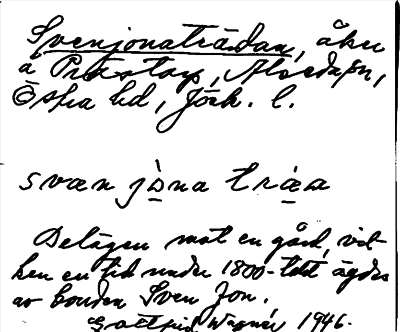 Svenjonaträdan, åker
å Prästorp, Alseda sn,
Östra hd, Jönk. l.
svæn jòna træa
Belägen mot en gård, vil-
ken en tid under 1800-talet ägdes
av bonden Sven Jon.
Gottfrid Wagnér 1946.